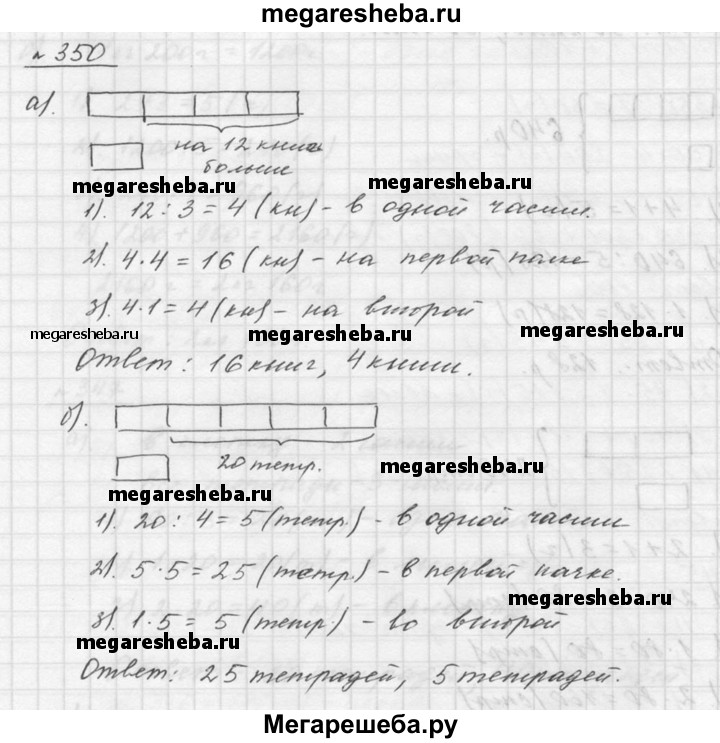 megaresheba.ru
№ 350
а).
на 12 книг
больше
megaresheba.ru
megaresheba.ru
1). 12 : 3 = 4 (кн) - в одной части.
2). 4 · 4 = 16 (кн) - на первой полке
3). 4 · 1 = 4 (кн) - на второй
megaresheba.ru
megaresheba.ru
megaresheba.ru
Ответ: 16 книг, 4 книги.
б).
20 тетр.
megaresheba.ru
megaresheba.ru
1). 20 : 4 = 5 (тетр.) - в одной части
2). 5 · 5 = 25 (тетр.) - в первой пачке.
megaresheba.ru
3). 1 · 5 = 5 (тетр.) - во второй
megaresheba.ru
Ответ: 25 тетрадей, 5 тетрадей.
Мегарешеба.ру